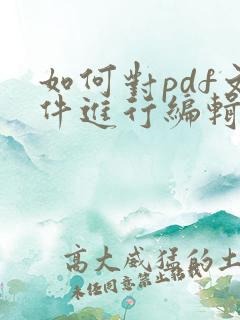 如何對pdf文
件進行編輯
高大威猛的土
未任同意禁止轉載